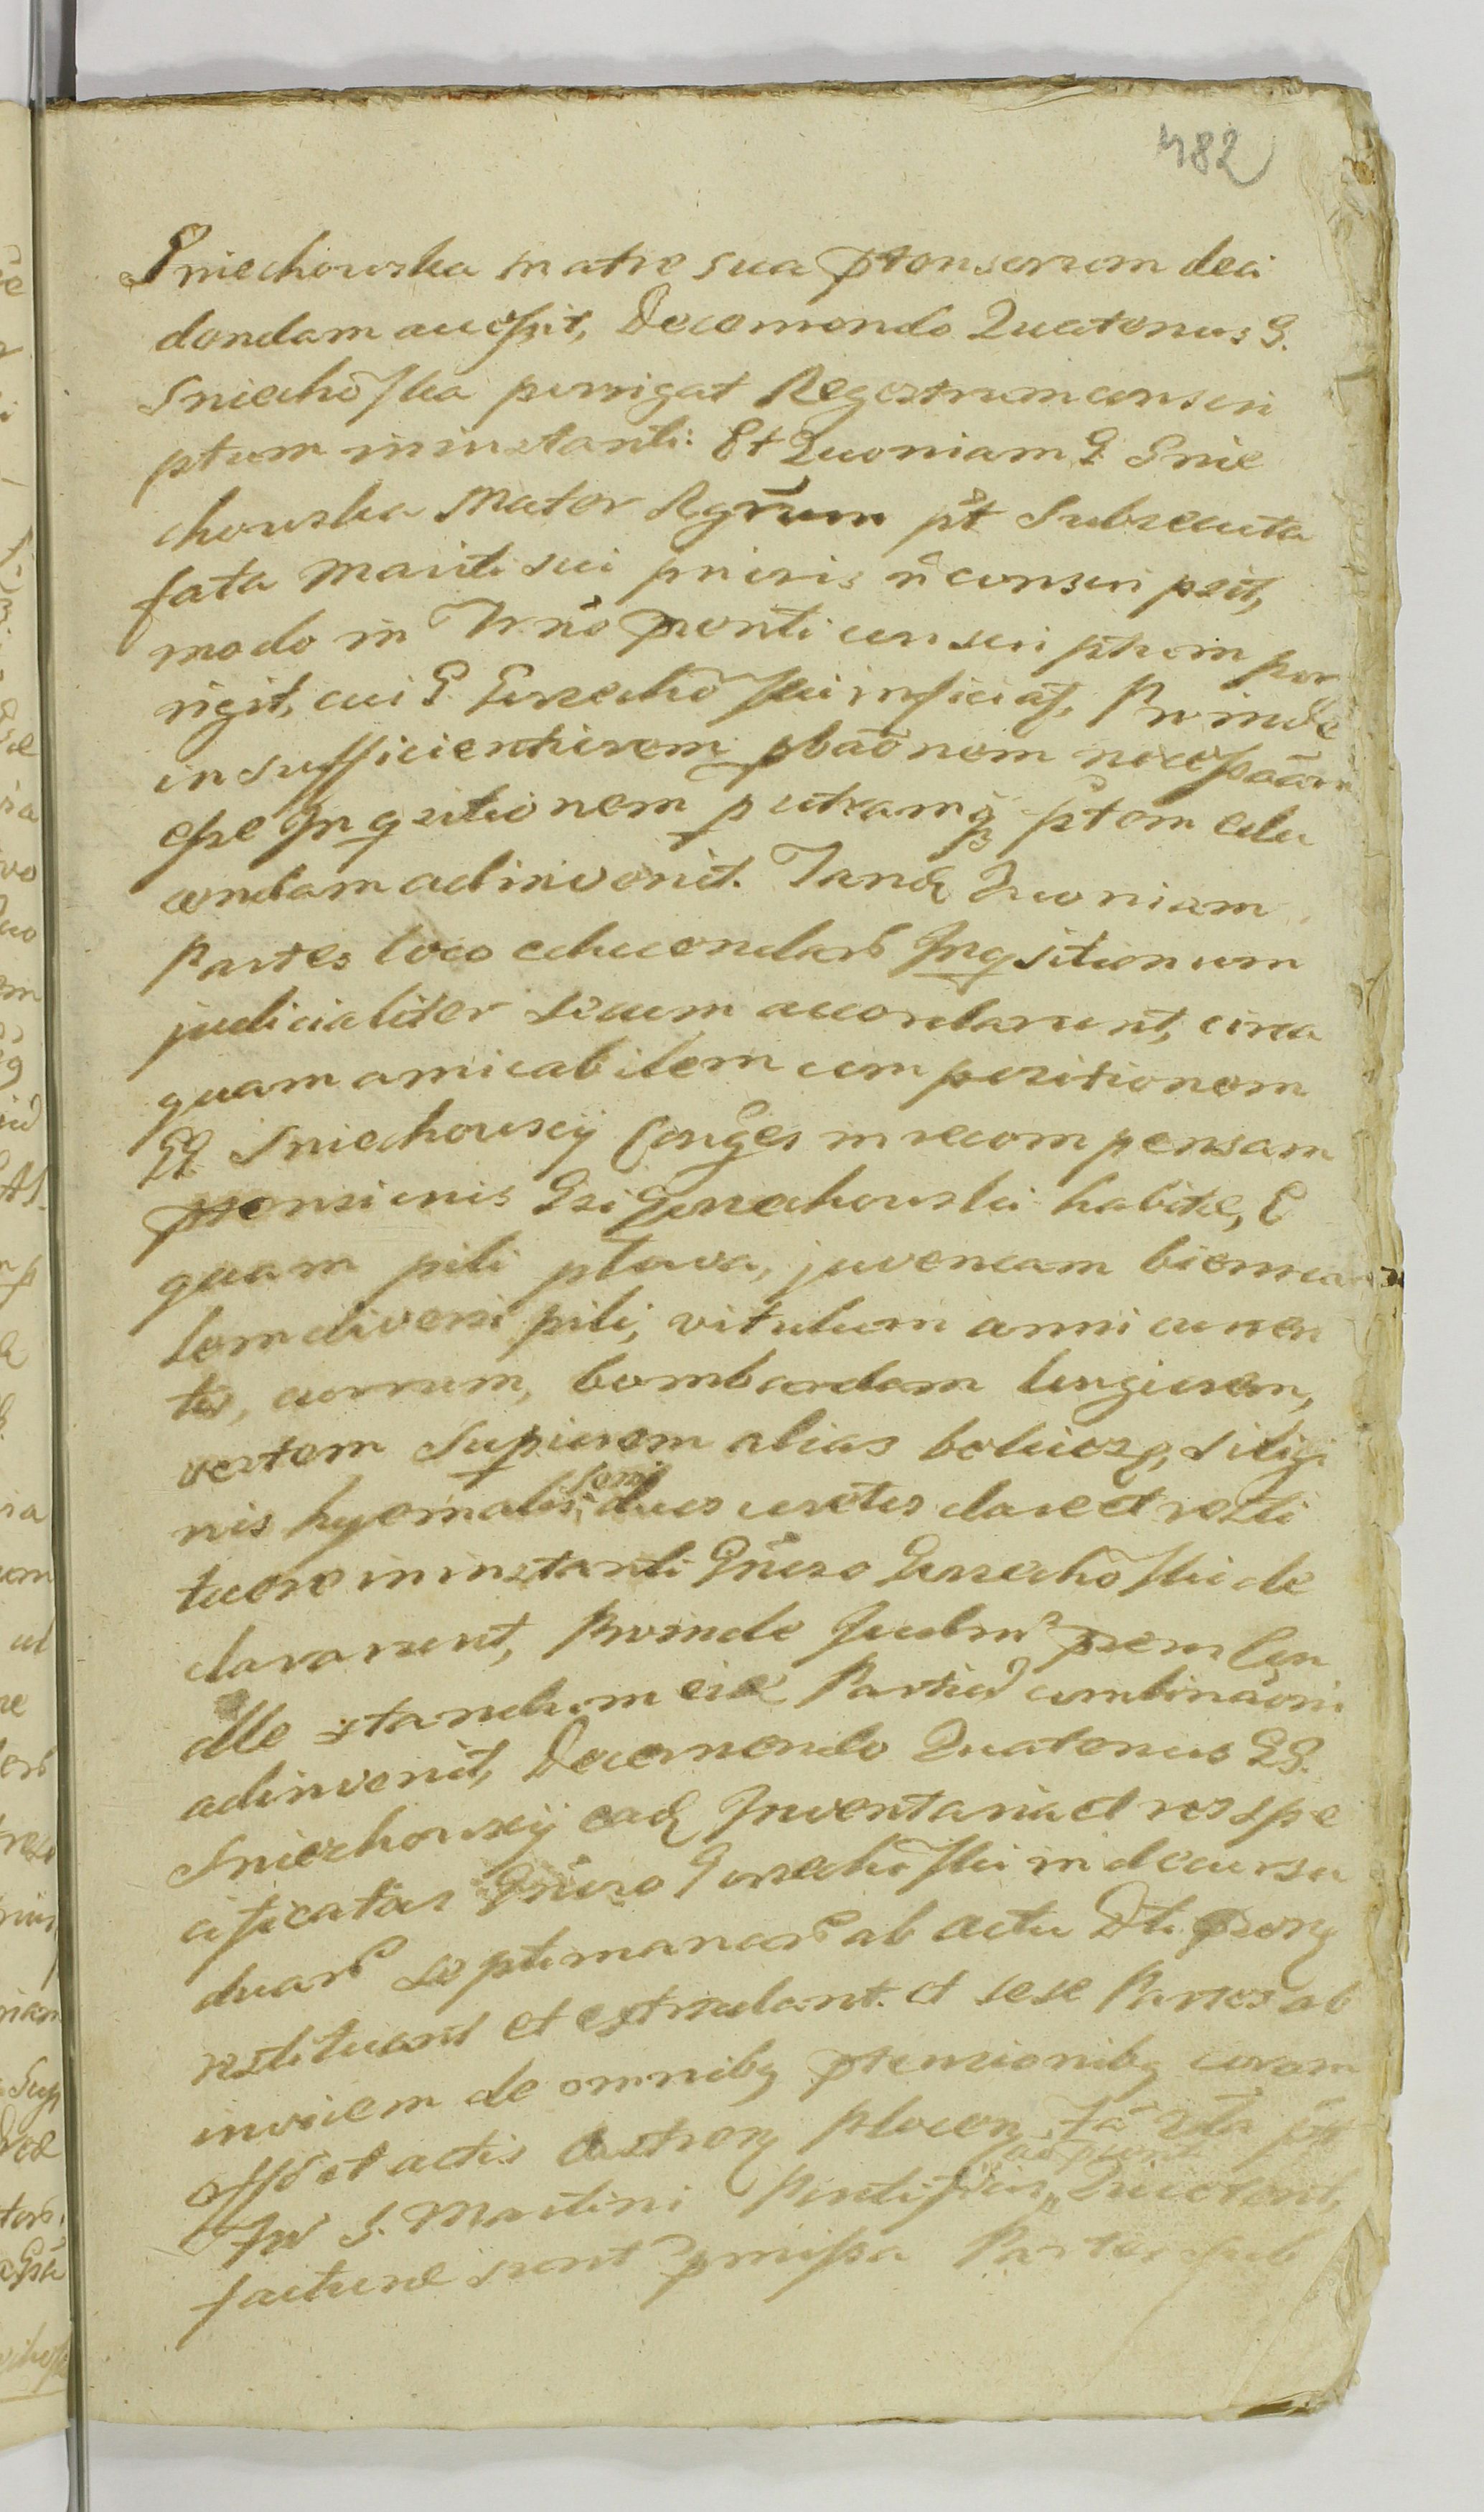 482
Sniechowska matre sua ptensorum deci
dendam accessit, Decernendo Quatenus G.
Sniechoska porrigat Regestrum conscri
ptum in instanti: Et Quoniam G. Snie
chowska Mater Rgrūm pt Subsecuta
fata Mariti sui prioris n̄ conscripsit,
modo in Trnō pnti conscriptum por
rigit, cui G. Gurechoski inficiat, Proinde
in sufficientiorem pbaōnem necessāam
esse Inqsitionem p utramq ptem edu
cendam adinvenit. Tandē Quoniam
Partes loco educendar Inqsitionum
judicialiter secum accordarunt, circa
quam amicabilem compositionem
GG Sniechowscy Conges in recompensam
ptensionis Gsi Gurechowski habitæ, E
quam pili płowa, juvencam biennua
lem diversi pili, vitulum anni curren
tis, currum, bombardam longiorem,
vestem Supiorem alias bekieszę, siligi
nis hyemalis duos coretos dare et resti
tuere in instanti Gnēroso Gurechoski de
clararunt, Proinde Judm psens Ca
lle standum eide Partiū combinaōni
adinvenit, Decernendo Quatenus GG.
Sniechowscy eadē Inventaria et res spe
cificatas Gnēroso Gurechoski in decursu
duar septimanar ab actu Dti psentis
restituant et extradant. et sese Partes ab
invicem de omnibq ptensionibq coram
offo et actis Castren Plocen
S. Martini Pontificis Quietent,
facturæ sunt pmissa Partes sub